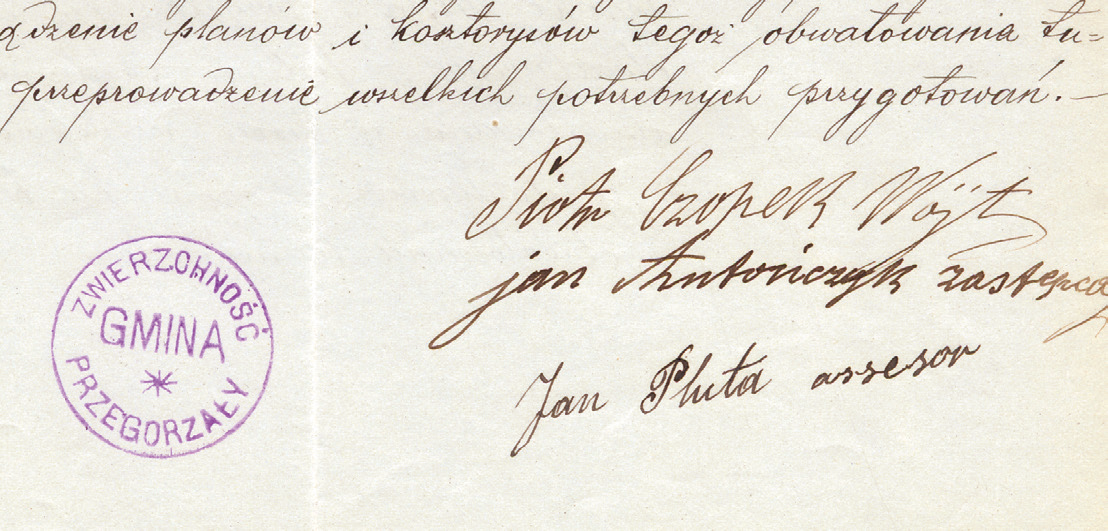 ądzenie planów i kosztorysów tegoż obwałowania tu=
przeprowadzenie wszelkich potrzebnych przygotowań. —
Piotr Czopek Wójt
jan Antończyk zastępca
Jan Pluta assesor
ZWIERZCHNOŚĆ
GMINA
PRZEGORZAŁY